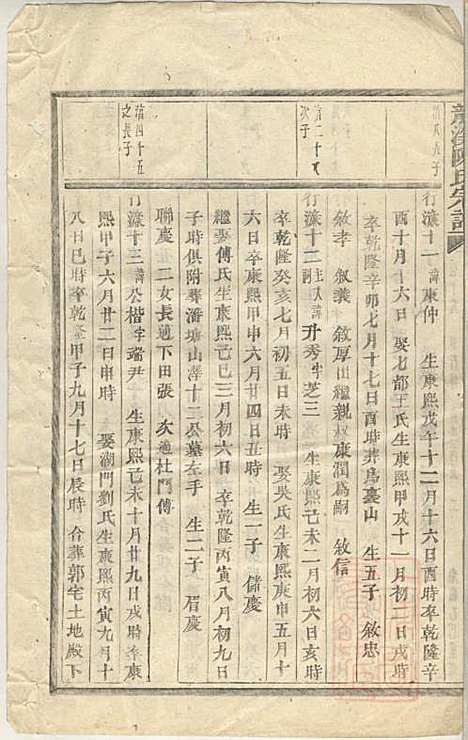 行濠十一諱康仲 生康熙戊午十二月十六日酉時卒乾隆辛
酉十月十六日 娶七都王氏生康熙甲戌十一月初二日戌時
卒乾隆辛卯七月十七日酉時葬烏臺山 生五子 敘忠
敘孝 敘義 敘厚出繼親叔康潤爲嗣 敘信
次子
行濠十二 諱升秀字芝三 生康熙己未二月初六日亥時
卒乾隆癸亥七月初五日未時 娶吳氏生康熙庚申五月十
六日卒康熙甲申六月廿四日丑時 生一子 儲慶
繼娶傅氏生康熙己巳三月初六日 卒乾隆丙寅八月初九日
子時俱附葬潘塘山澤十二公墓左手 生二子 眉慶
聯慶 二女長適下田張 次適杜門傅
四十五之長子
行濠十三諱公楷字璠尹 生康熙己未十月廿九日戌時卒康
熙甲子六月廿二日申時 娶湖門劉氏生康熙丙寅九月十
八日巳時卒乾隆甲子九月十七日辰時 合葬郭宅土地殿下